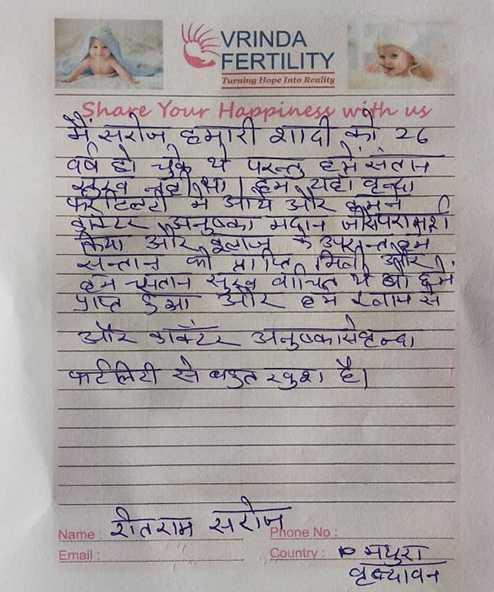 VRINDA
FERTILITY
Turning Hope Into Reality
Share Your Happiness with us
मैं सरोज हमारी शादी को 26
वर्ष हो चुके थे परन्तु हमे संतान
सुख नही था। हम यहा वृन्दा
फर्टिलिटी मे आये और हमने
डॉक्टर अनुष्का मदान जी से परामर्श
किया और इलाज के उपरान्त हम
सन्तान की प्राप्ति मिली और
हम सन्तान सुख वंचित थे वो हमे
प्राप्त हुआ और हम इलाज से
और डाक्टर अनुष्का से वृन्दा
फर्टिलिटी से बहुत खुश है।
Name : सरोज
Phone No :
Email :
Country : मथुरा
वृन्दावन